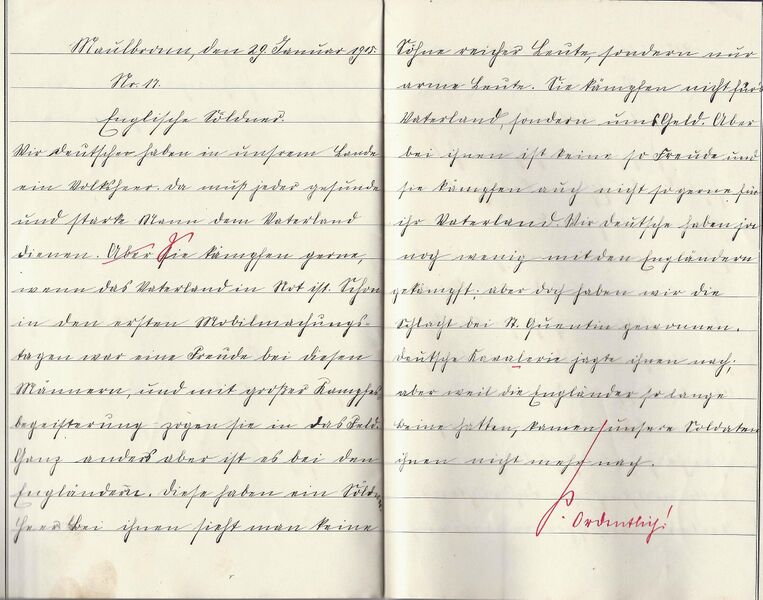 Maulbronn, den 29. Januar 1915.
No. 17.
Englische Söldner.
Wir deutschen haben in unsrem Lande
ein Volksheer. Da muß jeder gesunde
und starke Mann dem Vaterland
dienen. Aber Sie kämpfen gerne,
wenn das Vaterland in Not ist. Schon
in den ersten Mobilmachungs-
tagen war eine Freude bei diesen
Männern, und mit großer Kampfes-
begeisterung zogen sie in das Feld.
Ganz anders aber ist es bei den
Engländern. Diese haben ein Söldner
heer. Bei ihnen sieht man keine
Söhne reicher Leute, sondern nur
arme Leute. Sie kämpfen nicht für's
Vaterland, sondern ums Geld. Aber
bei ihnen ist keine so Freude und
sie kämpfen auch nicht so gerne für
ihr Vaterland. Wir deutsche haben ja
noch wenig mit den Engländern
gekämpft; aber doch haben wir die
Schlacht bei St. Quentin gewonnen.
Deutsche Kavalerie jagte ihnen nach;
aber weil die Engländer so lange
Beine hatten, kamen unsere Soldaten
ihnen nicht mehr nach.
Ordentlich!